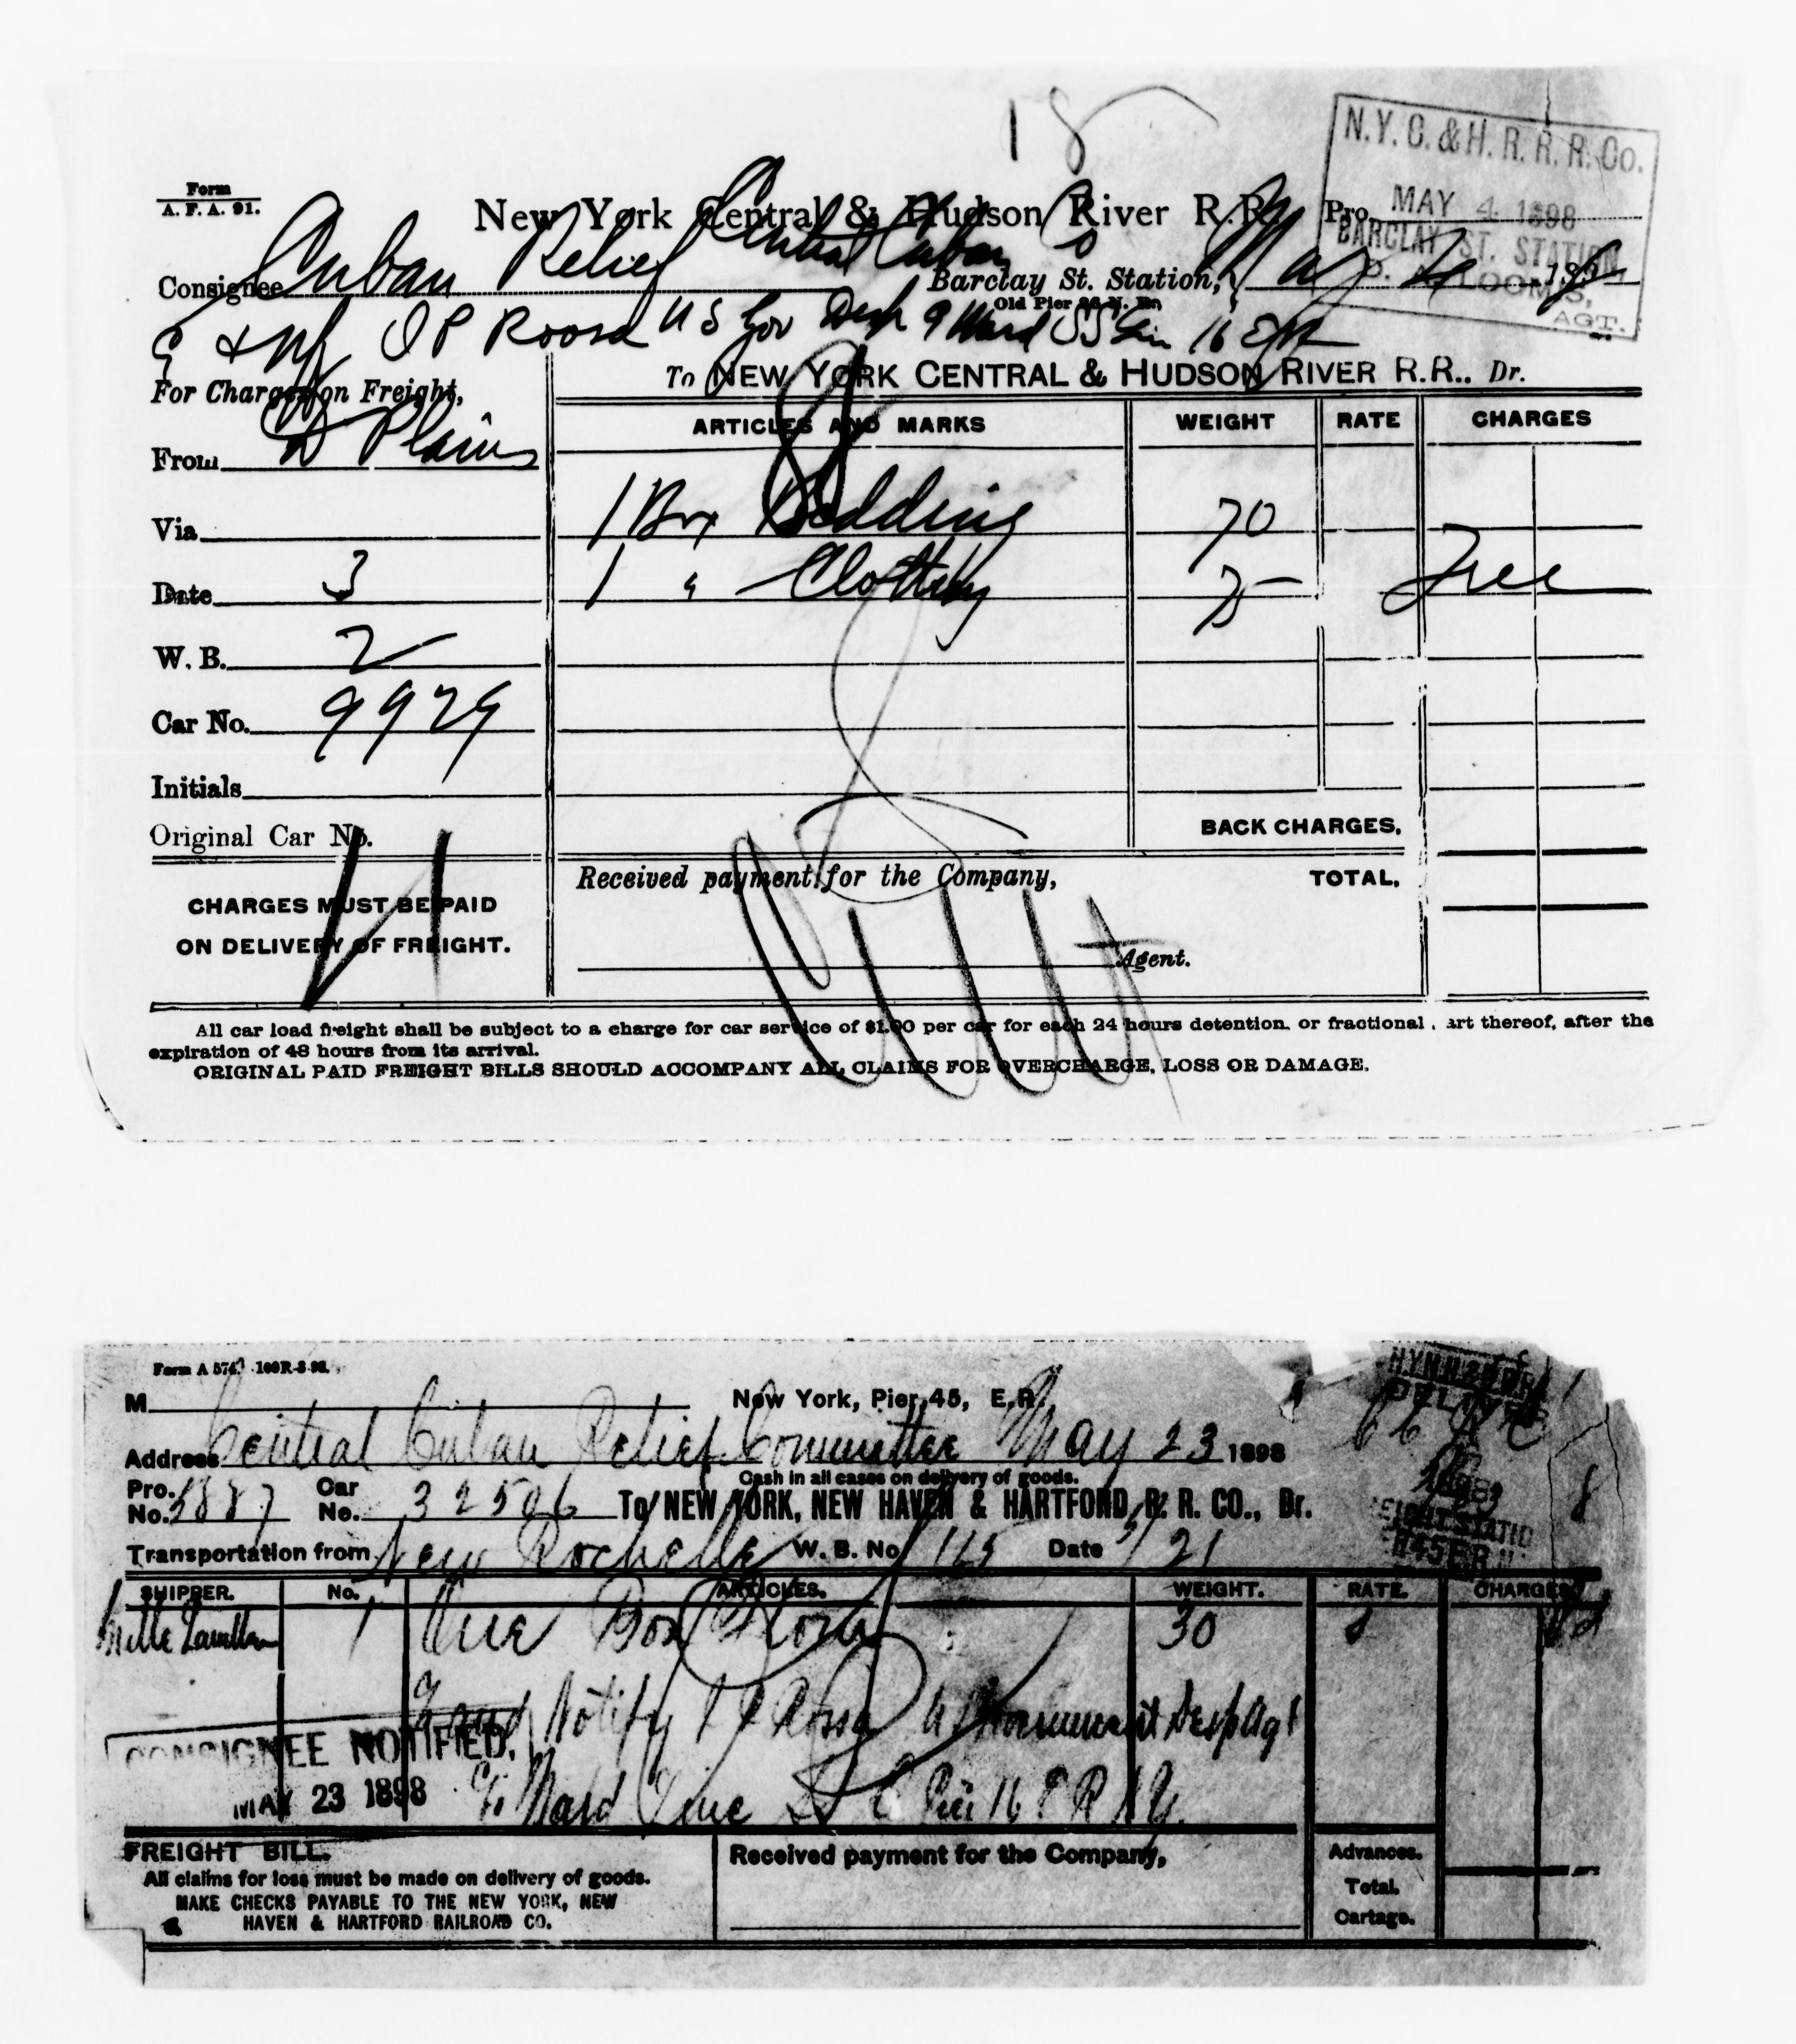 18
N.Y.C. & H. R. R. R. Co.
MAY 4 1898
BARCLAY ST. STATION
LOOMIS,
AGT.
Form
A. F. A. 91.
New York Central & Hudson River R.R. Pro.
Central Cuban
Consignee Cuban Relief Barclay St. Station, May 4 1898
Old Pier 26 N. R.
& Ntf J P Roosa U S Gov Desp 9 Ward SS Lin 16 ER
For Charges on Freight,
To NEW YORK CENTRAL & HUDSON RIVER R.R., Dr.
ARTICLES AND MARKS WEIGHT RATE CHARGES
From Plains
1 Box Bedding 70
Via
1 " Clothing 75 Free
Date 3
W. B. 2
Car No. 9929
Initials
Original Car No. BACK CHARGES,
Received payment for the Company, TOTAL,
CHARGES MUST BE PAID
ON DELIVERY OF FREIGHT.
Agent.
All car load freight shall be subject to a charge for car service of $1.00 per car for each 24 hours detention, or fractional art thereof, after the
expiration of 48 hours from its arrival.
ORIGINAL PAID FREIGHT BILLS SHOULD ACCOMPANY ALL CLAIMS FOR OVERCHARGE, LOSS OR DAMAGE.
Form A 574
M New York, Pier 45, E.R.
Address Central Cuban Relief Committee May 23 1898
Cash in all cases on delivery of goods.
Pro. No. 5887 Car No. 32506 To NEW YORK, NEW HAVEN & HARTFORD R. R. CO., Dr.
Transportation from New Rochelle W. B. No. 115 Date 5/21
SHIPPER. No. ARTICLES. WEIGHT. RATE. CHARGES
1 One Box 30
Notify J P Roosa U S Government Desp Agt
CONSIGNEE NOTIFIED.
MAY 23 1898
c/o Ward Line S S Co Pier 16 E R N Y.
FREIGHT BILL.
All claims for loss must be made on delivery of goods.
MAKE CHECKS PAYABLE TO THE NEW YORK, NEW
HAVEN & HARTFORD RAILROAD CO.
Received payment for the Company,
Advances.
Total.
Cartage.